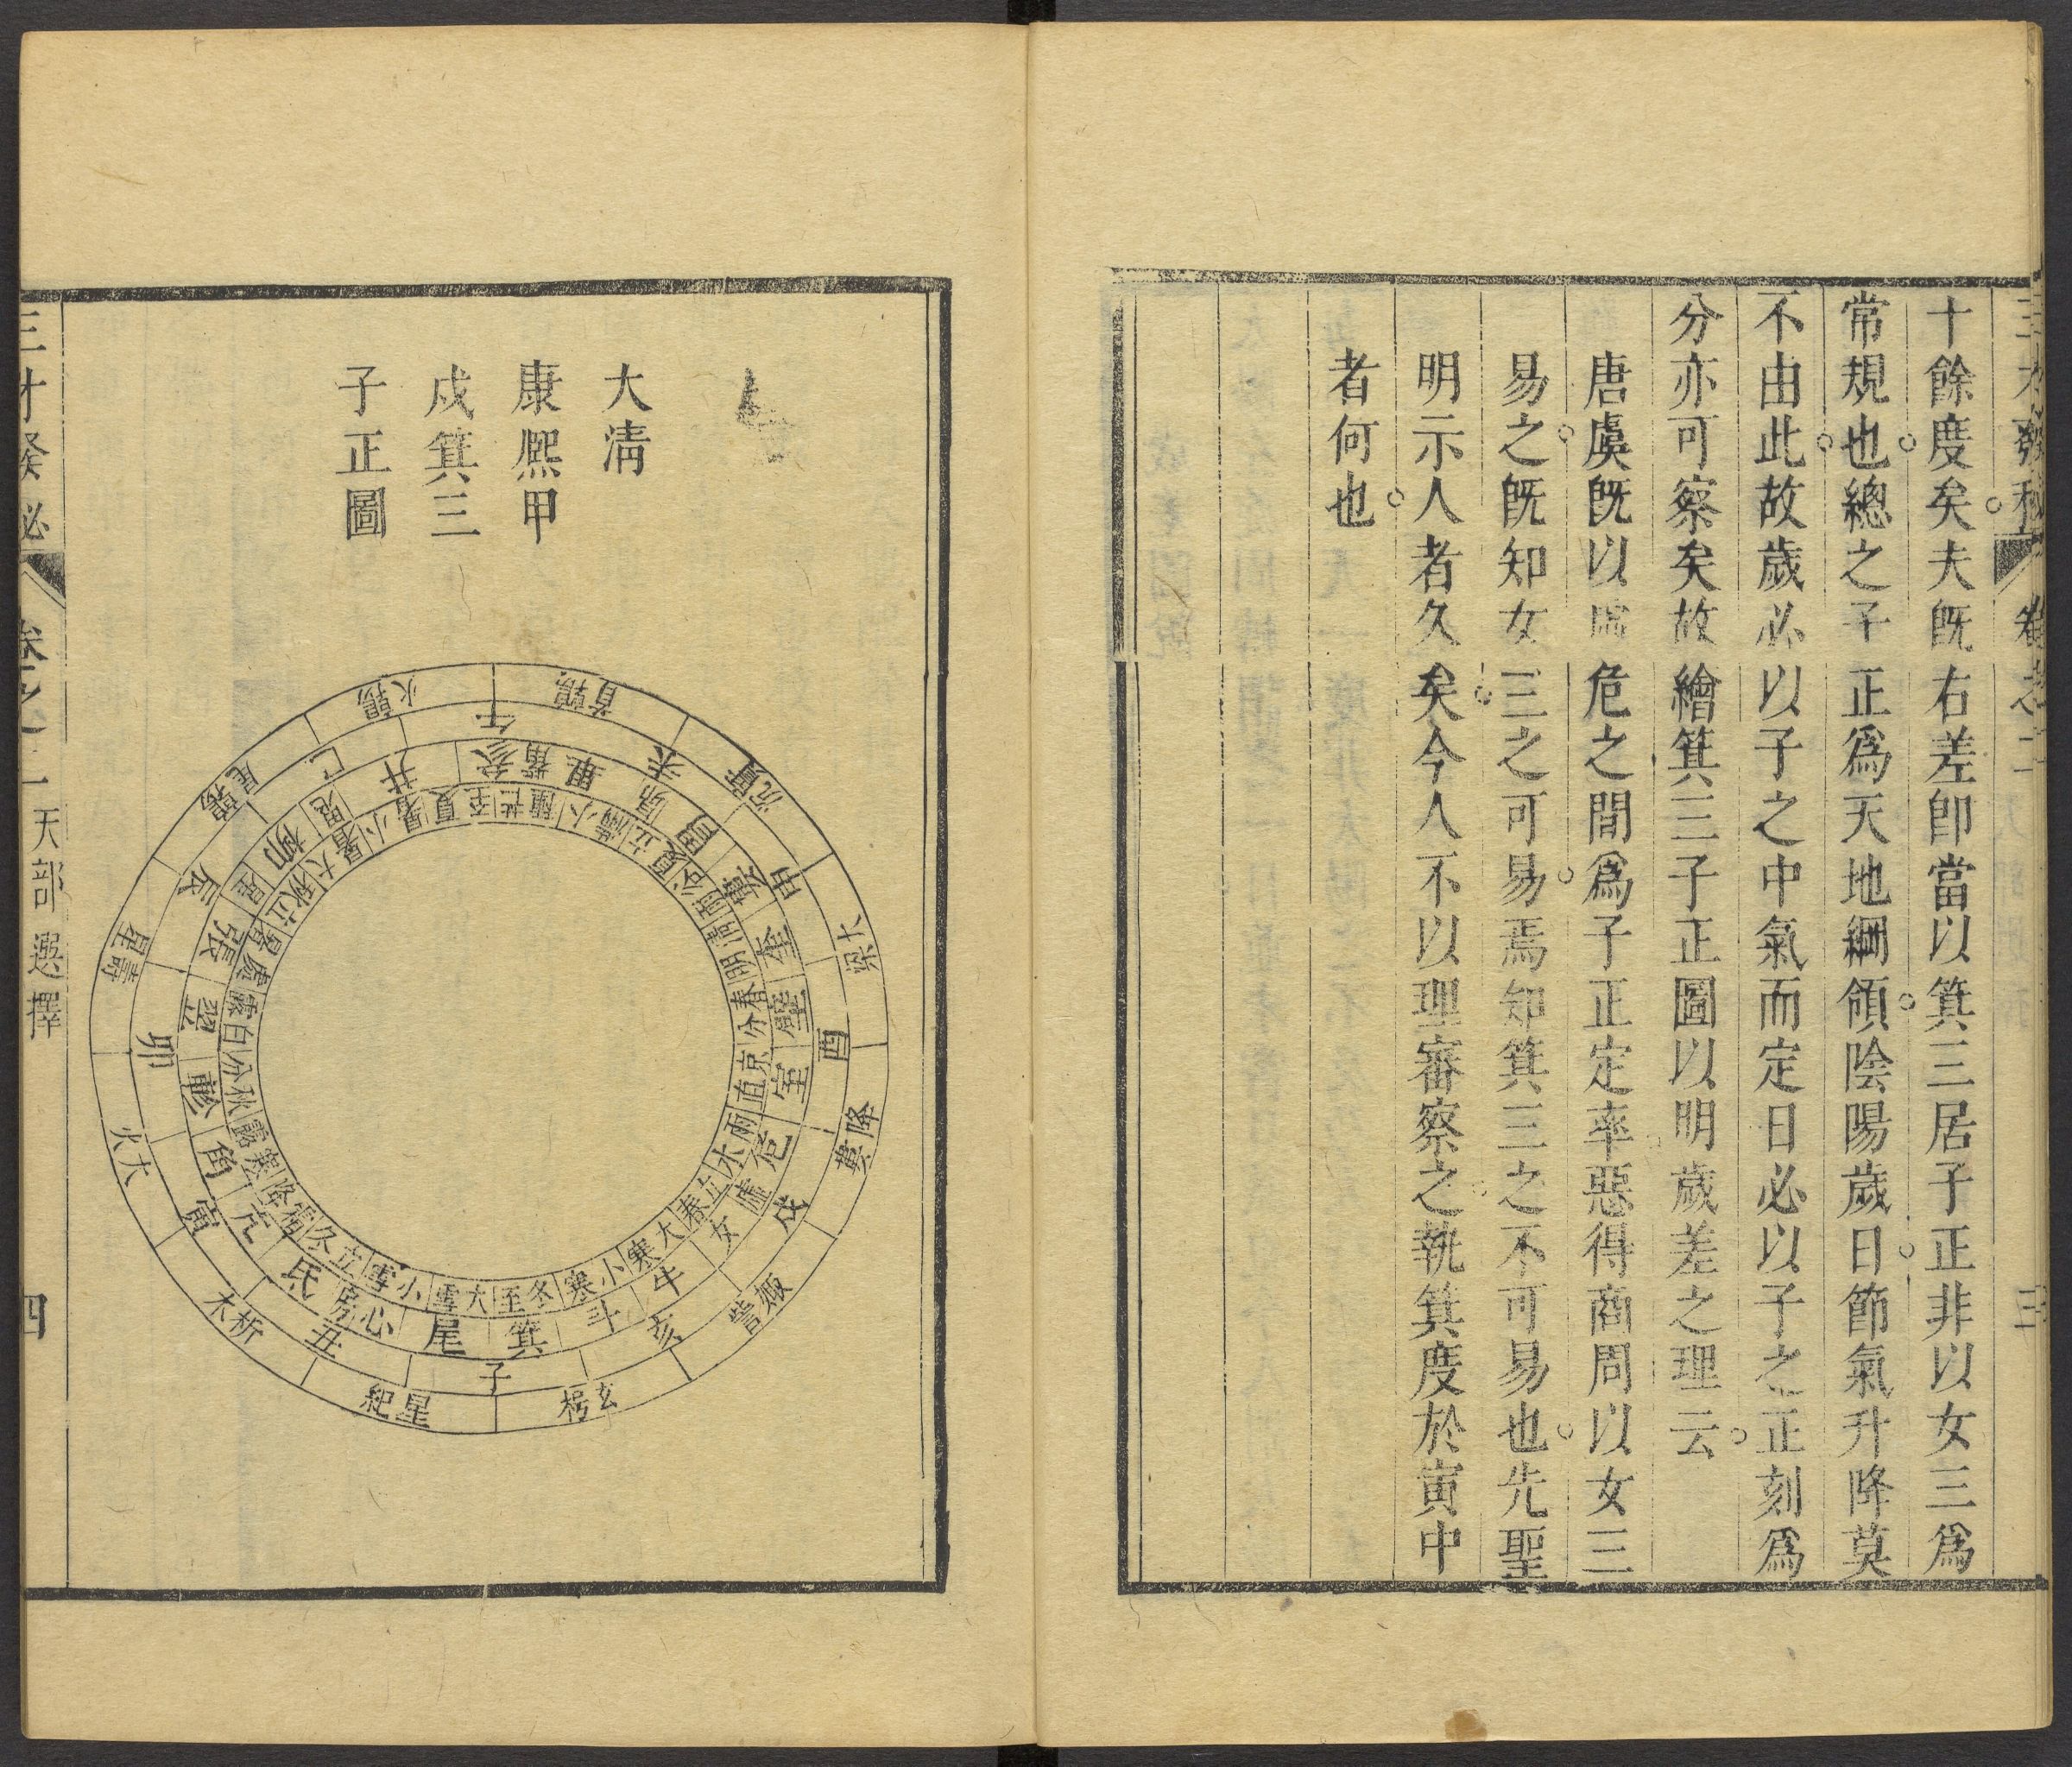 三才發秘 卷之二 三
十餘度矣夫既右差卽當以箕三居子正非以女三爲
常規也總之子正爲天地綱領陰陽歲日節氣升降莫
不由此故歲必以子之中氣而定日必以子之正刻爲
分亦可察矣故繪箕三子正圖以明歲差之理云
唐虞旣以虛危之間爲子正定率惡得商周以女三
易之旣知女三之可易焉知箕三之不可易也先聖
明示人者久矣今人不以理審察之執箕度於寅中
者何也
大清
康熙甲
戍箕三
子正圖
午 未 申 酉 戌 亥 子 丑 寅 卯 辰 巳
鶉首 實沉 大梁 降婁 娵訾 玄枵 星紀 析木 大火 壽星 鶉尾 鶉火
參 觜 畢 昴 胃 婁 奎 壁 室 危 虛 女 牛 斗 箕 尾 心 房 氐 亢 角 軫 翌 張 星 柳 鬼 井
夏至 芒種 小滿 立夏 谷雨 清明 春分 直京 雨水 立春 大寒 小寒 冬至 大雪 小雪 立冬 霜降 寒露 秋分 白露 處暑 立秋 大暑 小暑
三才發秘 卷之二 天部 選擇 四